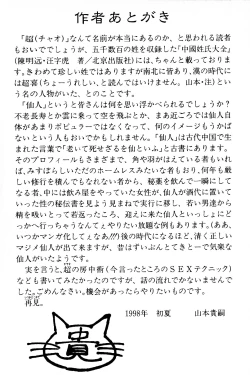 作者あとがき
「超（チャオ）」なんて名前が本当にあるのか、と思われる読者
もおいででしょうが、五千数百の姓を収録した「中國姓氏大全」
（陳明远・汪宇虎 著／北京出版社）には、ちゃんと載っておりま
す。きわめて珍しい姓ではありますが南北に皆あり、漢の時代に
は超喜（ちょーうれしい、と読んではいけません。山本・注）とい
う名の人物がいた、とのことです。
「仙人」というと皆さんは何を思い浮かべられるでしょうか？
不老長寿とか雲に乗って空を飛ぶとか、まあ近ごろでは仙人自
体があまりポピュラーではなくなって、何のイメージもうかば
ないという人もおいでかもしれません。「仙人」は古代中国で生
まれた言葉で「老いて死せざるを仙といふ」と古書にあります。
そのプロフィールもさまざまで、角や羽がはえている者もいれ
ば、みすぼらしいただのホームレスみたいな者もおり、何年も厳
しい修行を積んでもなれない者から、秘薬を飲んで一瞬にして
なる者、中には飲み屋をやっていた女性が、仙人が酒代に置いて
いった性の秘伝書を見よう見まねで実行に移し、若い男達から
精を吸いとって若返ったころ、迎えに来た仙人といっしょにど
っかへ行っちゃうなんてェやりたい放題な例もあります。（ああ、
いつかマンガ化してェなあ!!!）後の時代になるほど、清く正しい
マジメ仙人が出て来ますが、昔はずいぶんとてきとーで気楽な
仙人がいたようです。
実を言うと、超の房中術（今言ったところのＳＥＸテクニック）
なども書いてみたかったのですが、話の流れでかないませんで
した。ごめんなさい。機会があったらやりたいものです。
再見。
1998年 初夏 山本貴嗣
貴